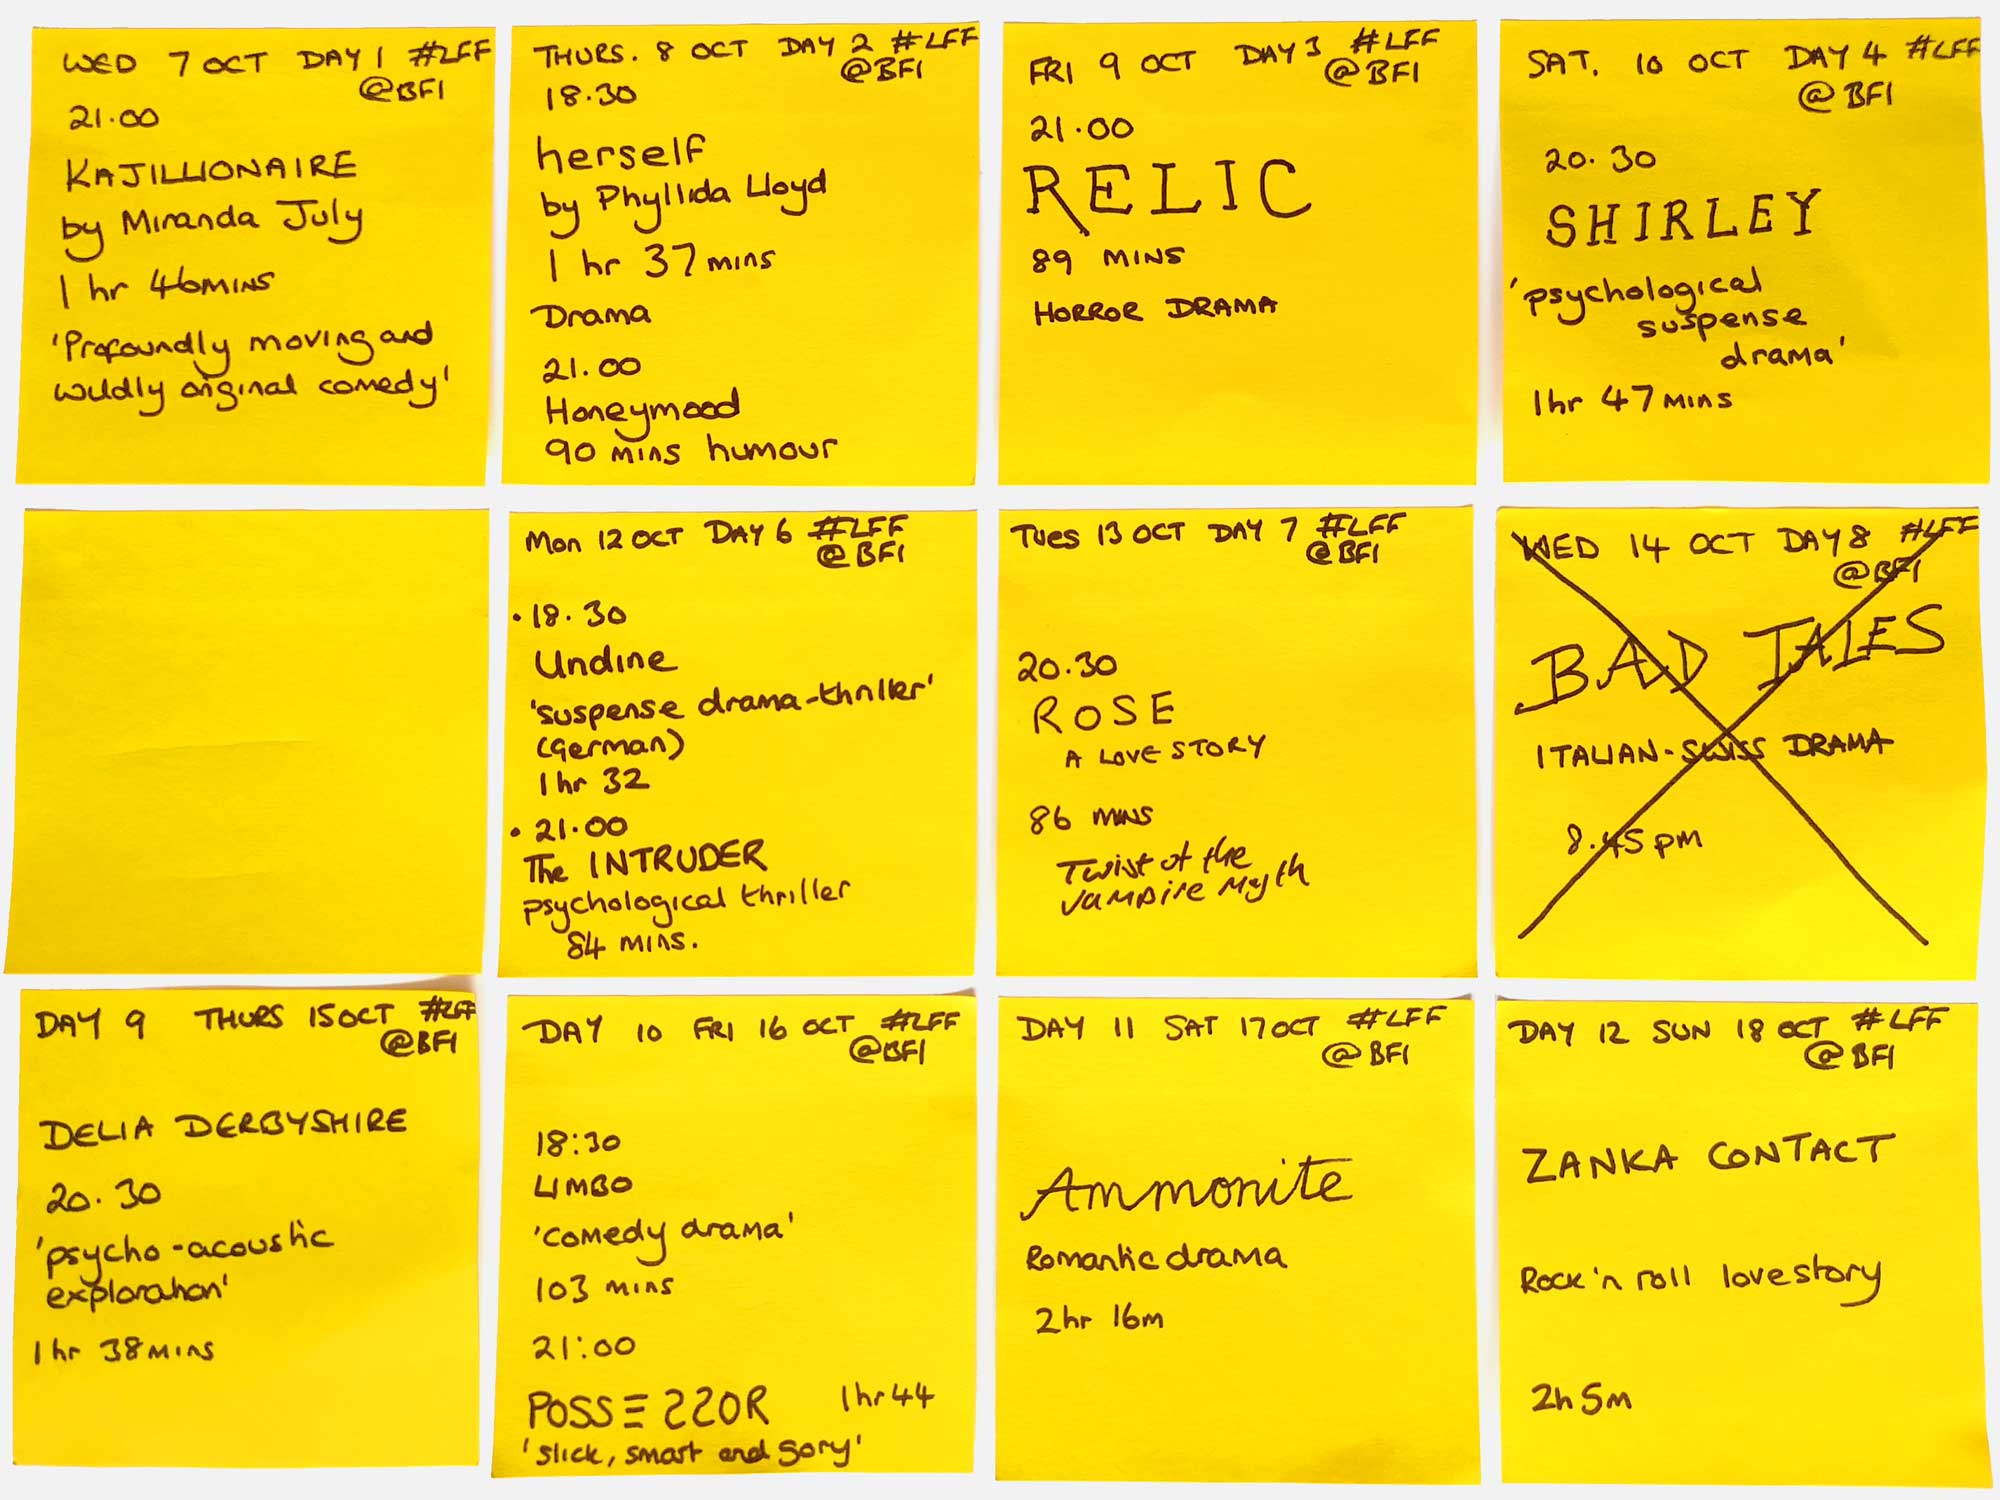 WED 7 OCT DAY 1 #LFF
@BFI
21.00
KAJILLIONAIRE
by Miranda July
1 hr 46 MINS
'Profoundly moving and
wildly original comedy'
THURS. 8 OCT DAY 2 #LFF
@BFI
18.30
herself
by Phyllida Lloyd
1 hr 37 MINS
Drama
21.00
Honeymood
90 MINS humour
FRI 9 OCT DAY 3 #LFF
@BFI
21.00
RELIC
89 MINS
HORROR DRAMA
SAT. 10 OCT DAY 4 #LFF
@BFI
20.30
SHIRLEY
'psychological
suspense
drama'
1hr 47 MINS
Mon 12 OCT DAY 6 #LFF
@BFI
• 18.30
Undine
'suspense drama-thriller'
(German)
1 hr 32
• 21.00
The INTRUDER
psychological thriller
84 MINS.
Tues 13 OCT DAY 7 #LFF
@BFI
20.30
ROSE
A LOVE STORY
86 MINS
Twist of the
vampire myth
WED 14 OCT DAY 8 #LFF
@BFI
BAD TALES
ITALIAN-SWISS DRAMA
8.45pm
DAY 9 THURS 15 OCT #LFF
@BFI
DELIA DERBYSHIRE
20.30
'psycho-acoustic
exploration'
1 hr 38 MINS
DAY 10 FRI 16 OCT #LFF
@BFI
18:30
LIMBO
'comedy drama'
103 MINS
21:00
POSSESSOR 1hr 44
'slick, smart and gory'
DAY 11 SAT 17 OCT #LFF
@BFI
Ammonite
Romantic drama
2hr 16m
DAY 12 SUN 18 OCT #LFF
@BFI
ZANKA CONTACT
Rock 'n roll lovestory
2h 5m